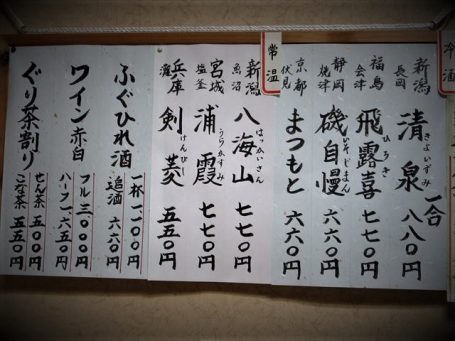 冷酒
新潟 長岡 清泉 きよいずみ 一合 八八〇円
福島 会津 飛露喜 ひろき 七七〇円
静岡 焼津 磯自慢 いそじまん 六六〇円
京都 伏見 まつもと 六六〇円
常温
新潟 魚沼 八海山 はっかいさん 七七〇円
宮城 塩釜 浦霞 うらかすみ 七七〇円
兵庫 灘 剣菱 けんびし 五五〇円
ふぐひれ酒 一杯 一一〇〇円
追酒 六六〇円
ワイン 赤白 フル 三〇〇〇円
ハーフ 一六五〇円
ぐり茶割り せん茶 五五〇円
こな茶 五五〇円